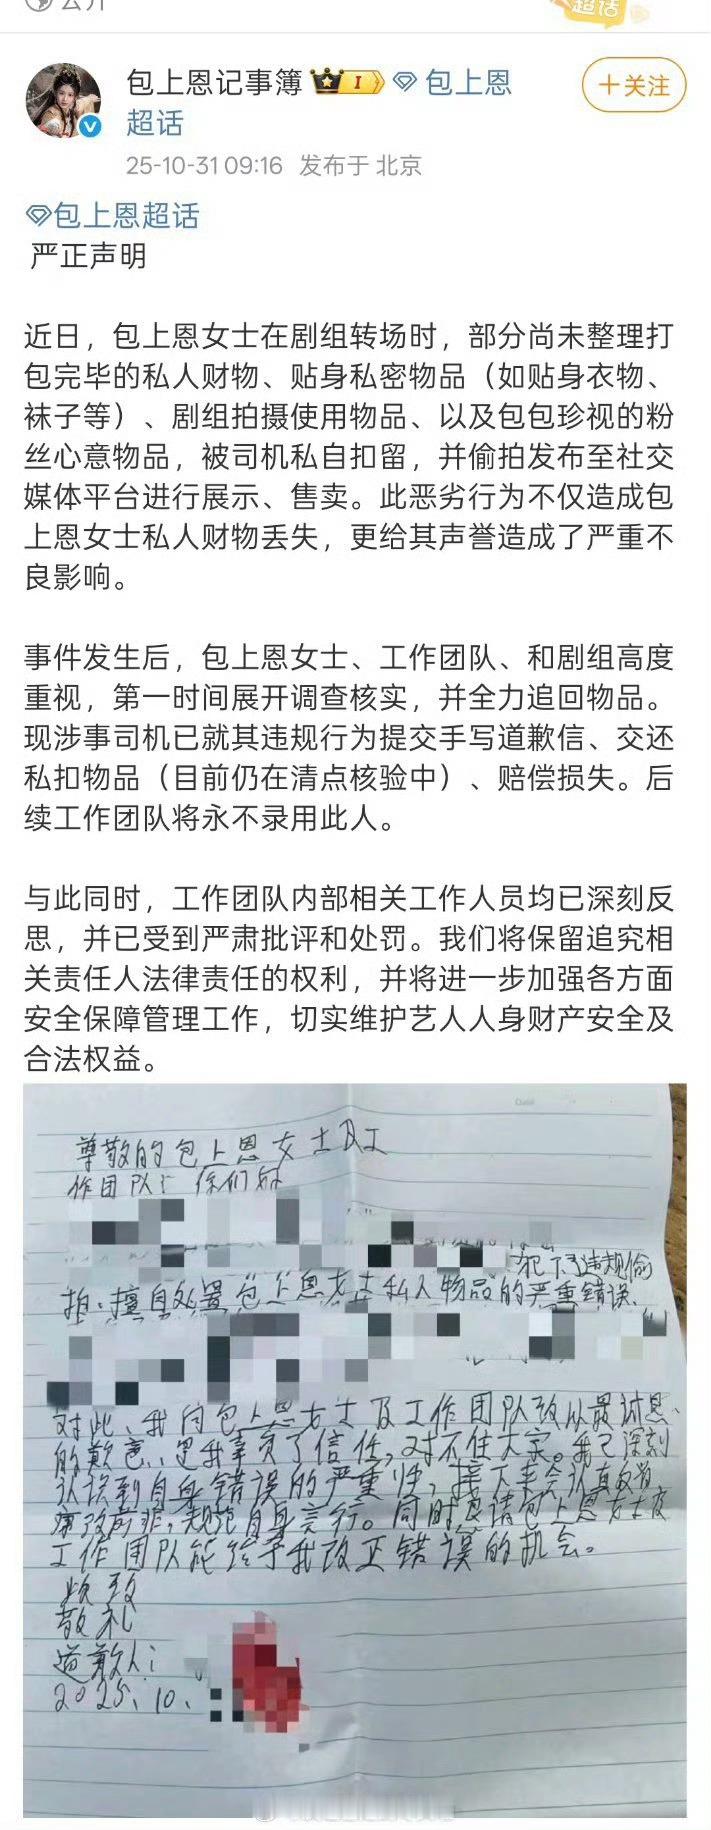 超话
包上恩记事簿 I 包上恩
超话
25-10-31 09:16 发布于 北京
+关注
包上恩超话
严正声明
近日，包上恩女士在剧组转场时，部分尚未整理打
包完毕的私人财物、贴身私密物品（如贴身衣物、
袜子等）、剧组拍摄使用物品、以及包包珍视的粉
丝心意物品，被司机私自扣留，并偷拍发布至社交
媒体平台进行展示、售卖。此恶劣行为不仅造成包
上恩女士私人财物丢失，更给其声誉造成了严重不
良影响。
事件发生后，包上恩女士、工作团队、和剧组高度
重视，第一时间展开调查核实，并全力追回物品。
现涉事司机已就其违规行为提交手写道歉信、交还
私扣物品（目前仍在清点核验中）、赔偿损失。后
续工作团队将永不录用此人。
与此同时，工作团队内部相关工作人员均已深刻反
思，并已受到严肃批评和处罚。我们将保留追究相
关责任人法律责任的权利，并将进一步加强各方面
安全保障管理工作，切实维护艺人人身财产安全及
合法权益。
尊敬的包上恩女士及工
作团队：你们好
犯下违规偷
拍、擅自处置包上恩女士私人物品的严重错误、
对此、我向包上恩女士及工作团队致以最诚恳
的歉意、是我辜负了信任，对不住大家。我已深刻
认识到自身错误的严重性，接下来会认真反省
痛改前非，规范自身言行。同时恳请包上恩女士及
工作团队能给予我改正错误的机会。
敬礼
道歉人：
2025.10.